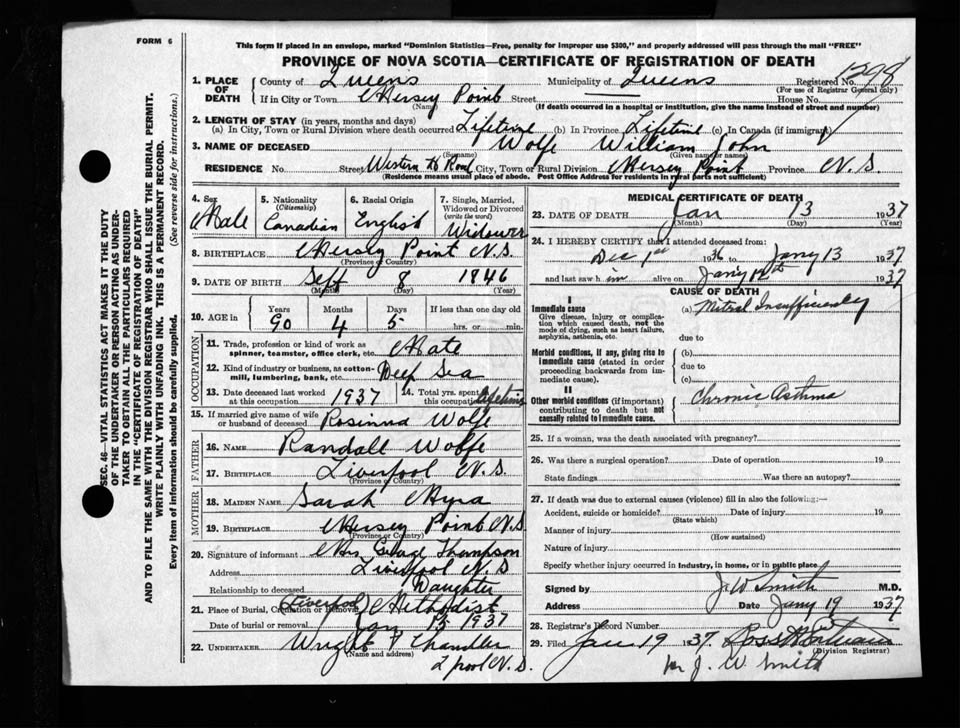 FORM 6
This form if placed in an envelope, marked "Dominion Statistics—Free, penalty for improper use $300," and properly addressed will pass through the mail "FREE"
PROVINCE OF NOVA SCOTIA—CERTIFICATE OF REGISTRATION OF DEATH
SEC. 46—VITAL STATISTICS ACT MAKES IT THE DUTY
OF THE UNDERTAKER OR PERSON ACTING AS UNDER-
TAKER TO OBTAIN ALL THE PARTICULARS REQUIRED
IN THE "CERTIFICATE OF REGISTRATION OF DEATH"
AND TO FILE THE SAME WITH THE DIVISION REGISTRAR WHO SHALL ISSUE THE BURIAL PERMIT.
WRITE PLAINLY WITH UNFADING INK. THIS IS A PERMANENT RECORD.
Every item of information should be carefully supplied. (See reverse side for instructions.)
1. PLACE OF DEATH County of Queens Municipality of Queens Registered No. 1298
(For use of Registrar General only)
If in City or Town Mersey Point Street House No.
(Name) (If death occurred in a hospital or institution, give the name instead of street and number)
2. LENGTH OF STAY (in years, months and days)
(a) In City, Town or Rural Division where death occurred Lifetime (b) In Province Lifetime (c) In Canada (if immigrant)
3. NAME OF DECEASED Wolfe William John
(Surname) (Given name or names)
RESIDENCE No. Street Western Rd City, Town or Rural Division Mersey Point Province N.S.
(Residence means usual place of abode. Post Office Address for residents in rural parts not sufficient)
4. Sex Male
5. Nationality (Citizenship) Canadian
6. Racial Origin English
7. Single, Married, Widowed or Divorced (write the word) Widower
8. BIRTHPLACE Mersey Point N.S.
(Province or Country)
9. DATE OF BIRTH Sept 8 1846
(Month) (Day) (Year)
10. AGE in Years 90 Months 4 Days 5 If less than one day old hrs. or min.
OCCUPATION
11. Trade, profession or kind of work as spinner, teamster, office clerk, etc. Mate
12. Kind of industry or business, as cotton-mill, lumbering, bank, etc. Deep Sea
13. Date deceased last worked at this occupation 1937
14. Total yrs. spent in this occupation Lifetime
15. If married give name of wife or husband of deceased Rosinna Wolfe
FATHER
16. NAME Randall Wolfe
17. BIRTHPLACE Liverpool N.S.
(Province or Country)
MOTHER
18. MAIDEN NAME Sarah Myra
19. BIRTHPLACE Mersey Point N.S.
(Province or Country)
20. Signature of informant Mrs Thompson
Address Liverpool N.S
Relationship to deceased Daughter
21. Place of Burial, Cremation or Removal (Liverpool) Methodist
Date of burial or removal Jan 15 1937
22. UNDERTAKER Wright & Chandler
(Name and address)
L'pool N.S.
MEDICAL CERTIFICATE OF DEATH
23. DATE OF DEATH Jan 13 1937
(Month) (Day) (Year)
24. I HEREBY CERTIFY that I attended deceased from:
Dec 1st 1936 to Jany 13 1937
and last saw him alive on Jany 12th 1937
CAUSE OF DEATH
I
Immediate cause
Give disease, injury or complication which caused death, not the mode of dying, such as heart failure, asphyxia, asthenia, etc.
(a) Mitral Insufficiency
due to
Morbid conditions, if any, giving rise to immediate cause (stated in order proceeding backwards from immediate cause).
(b)
due to
(c)
II
Other morbid conditions (if important) contributing to death but not causally related to immediate cause.
Chronic Asthma
25. If a woman, was the death associated with pregnancy?
26. Was there a surgical operation? Date of operation 19
State findings Was there an autopsy?
27. If death was due to external causes (violence) fill in also the following:—
Accident, suicide or homicide? Date of injury 19
(State which)
Manner of injury
(How sustained)
Nature of injury
Specify whether injury occurred in industry, in home, or in public place
Signed by J. W Smith M.D.
Address Date Jany 19 1937
28. Registrar's Record Number
29. Filed Jan 19 1937
(Division Registrar)
J. W Smith